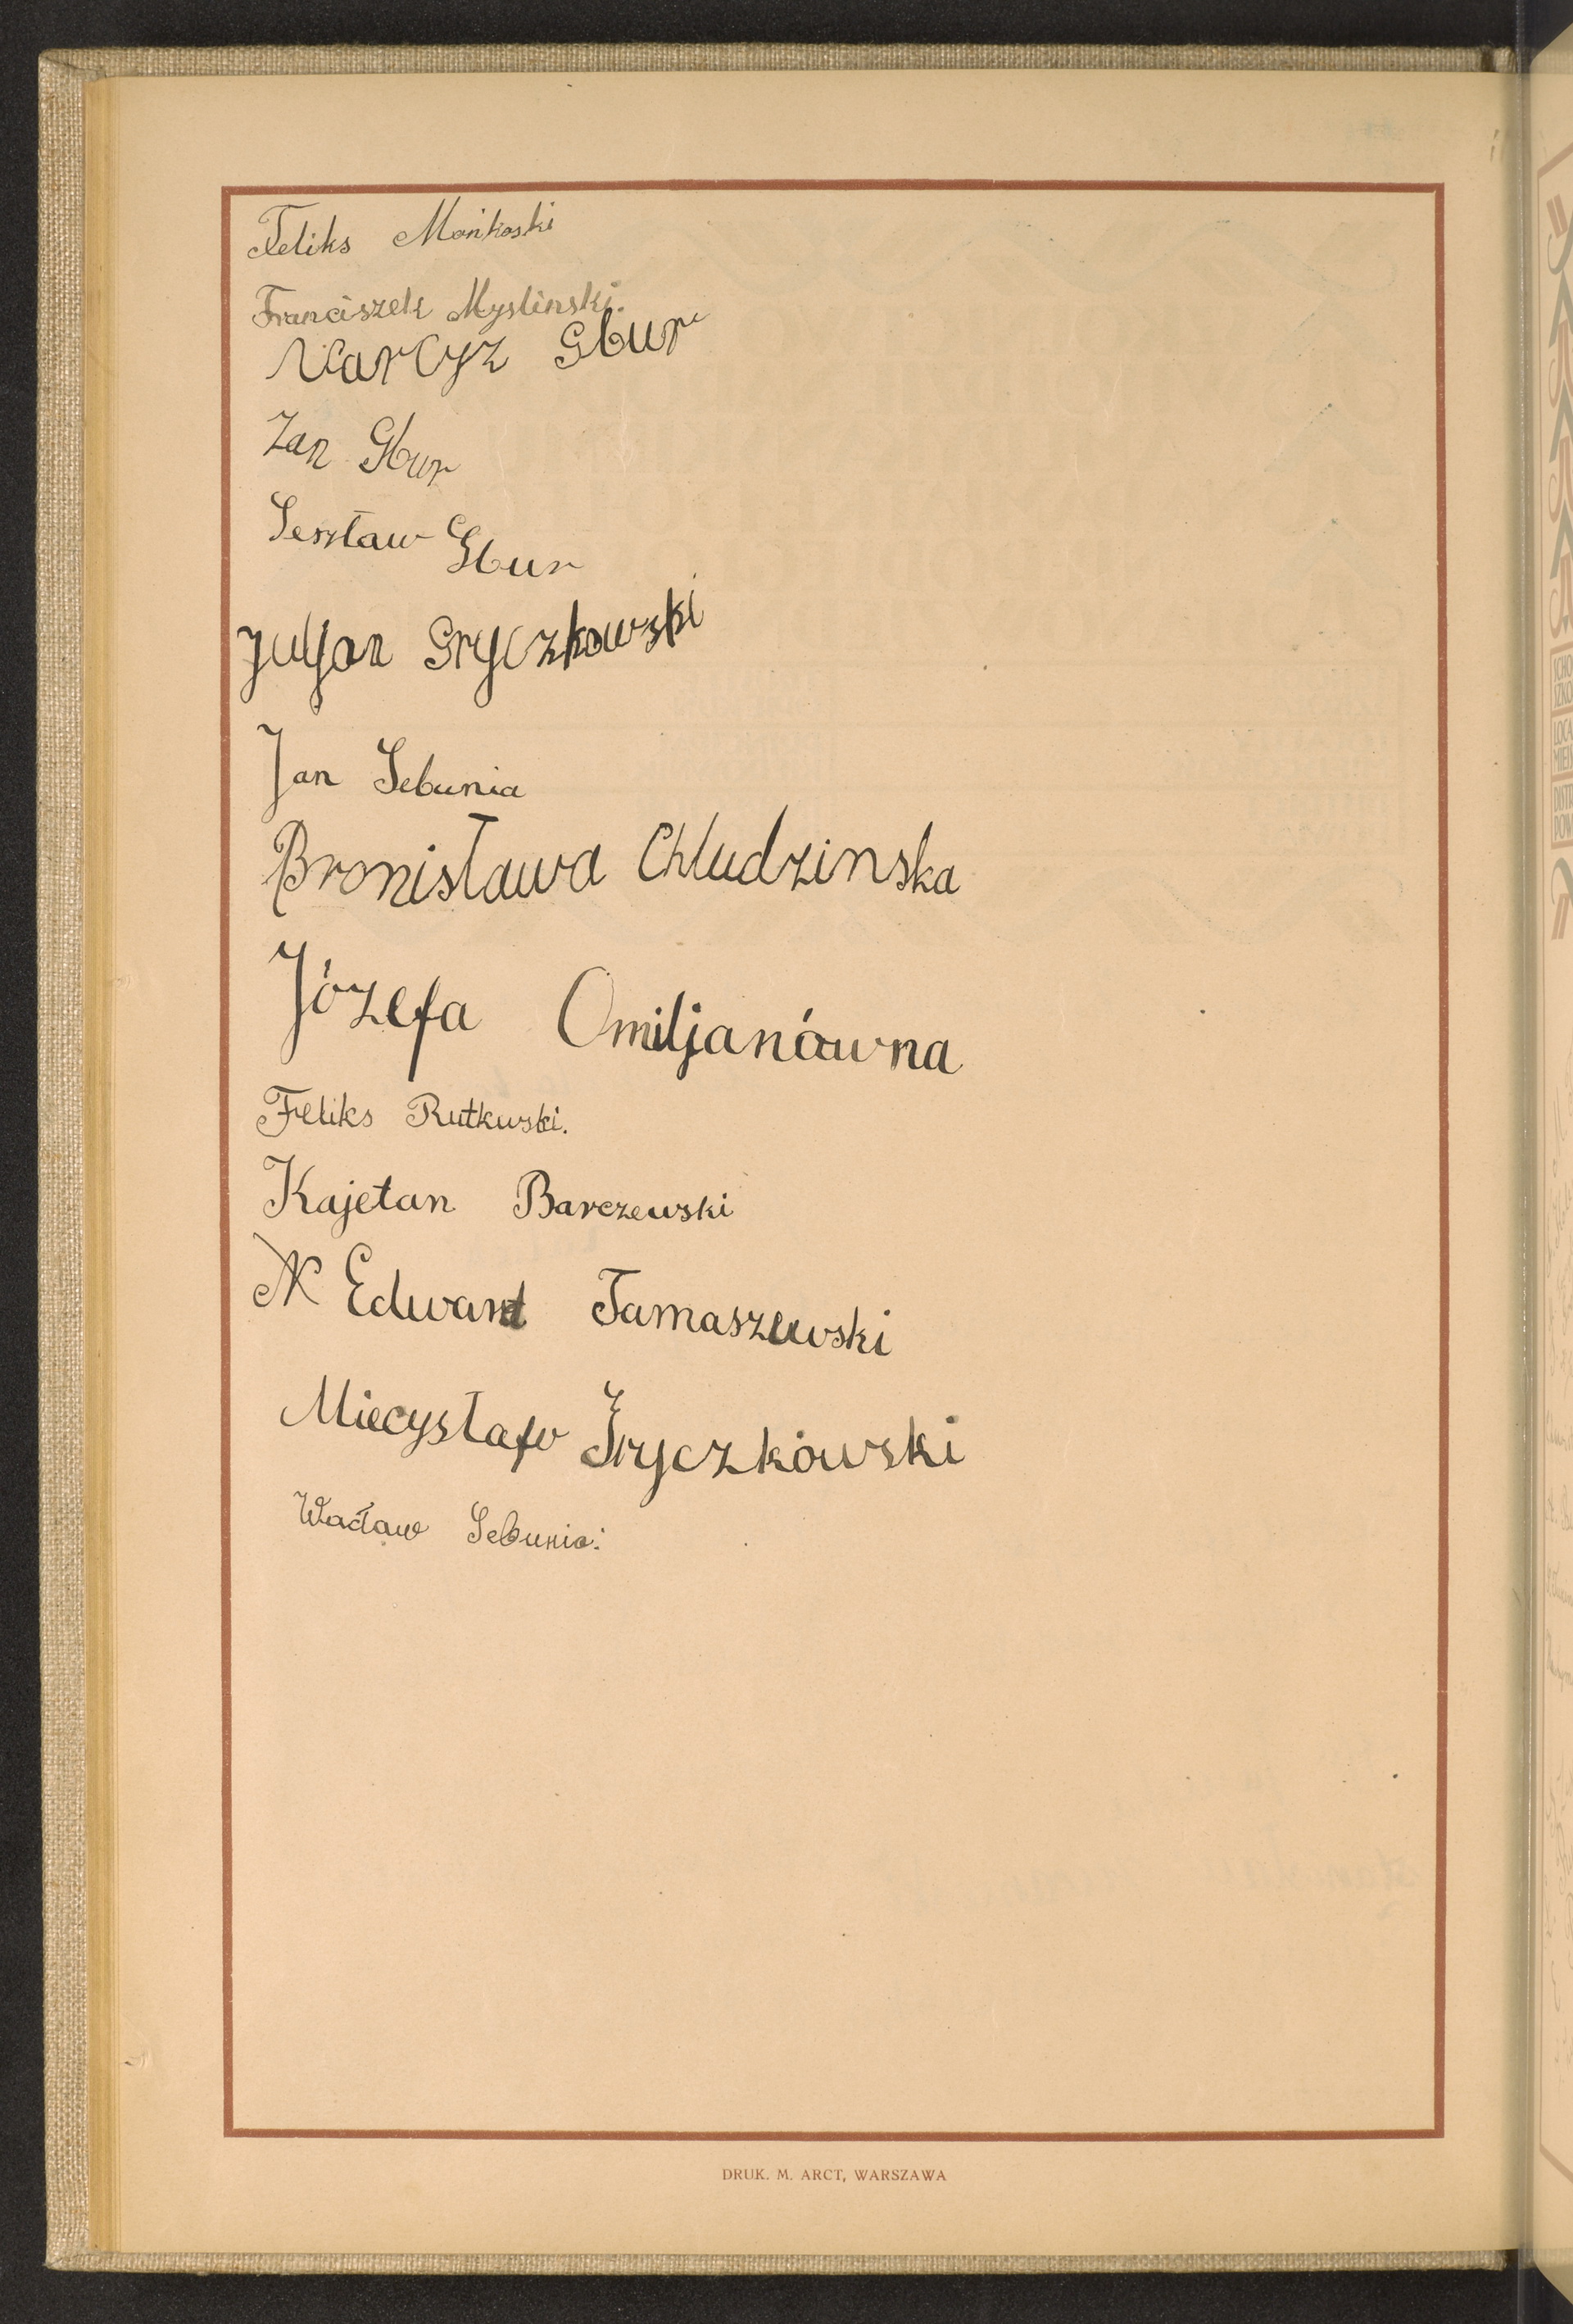 Feliks Mońkoski
Franciszek Myslinski.
Narcyz Gbur
Jan Gbur
Lesztaw Gbur
Juljan Gryczkowski
Jan Lebunia
Bronisława Chludzinska
Józefa Omiljanówna
Feliks Rutkwski.
Kajetan Barczewski
Edward Tamaszewski
Miecysław Gryczkowski
Wacław Lebunia
DRUK. M. ARCT, WARSZAWA